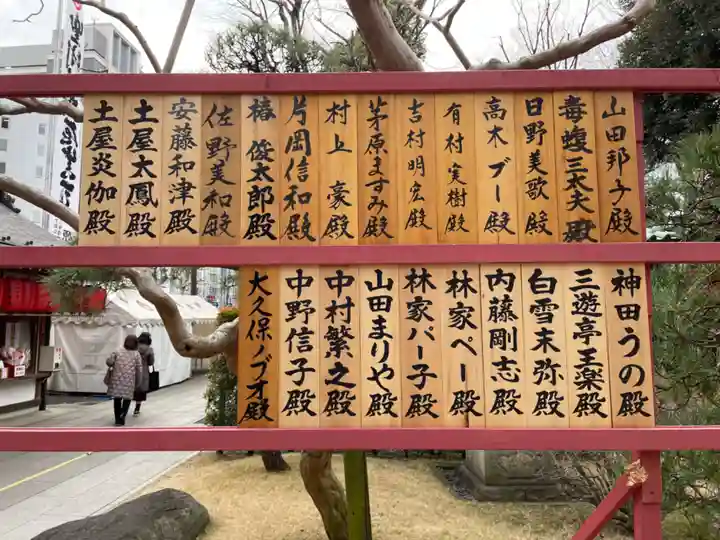 山田邦子殿
毒蝮三太夫殿
日野美歌殿
高木ブー殿
有村実樹殿
吉村明宏殿
茅原ますみ殿
村上豪殿
片岡信和殿
椿俊太郎殿
佐野美和殿
安藤和津殿
土屋太鳳殿
土屋炎伽殿
神田うの殿
三遊亭王楽殿
白雪未弥殿
内藤剛志殿
林家ペー殿
林家パー子殿
山田まりや殿
中村繁之殿
中野信子殿
大久保ノブオ殿